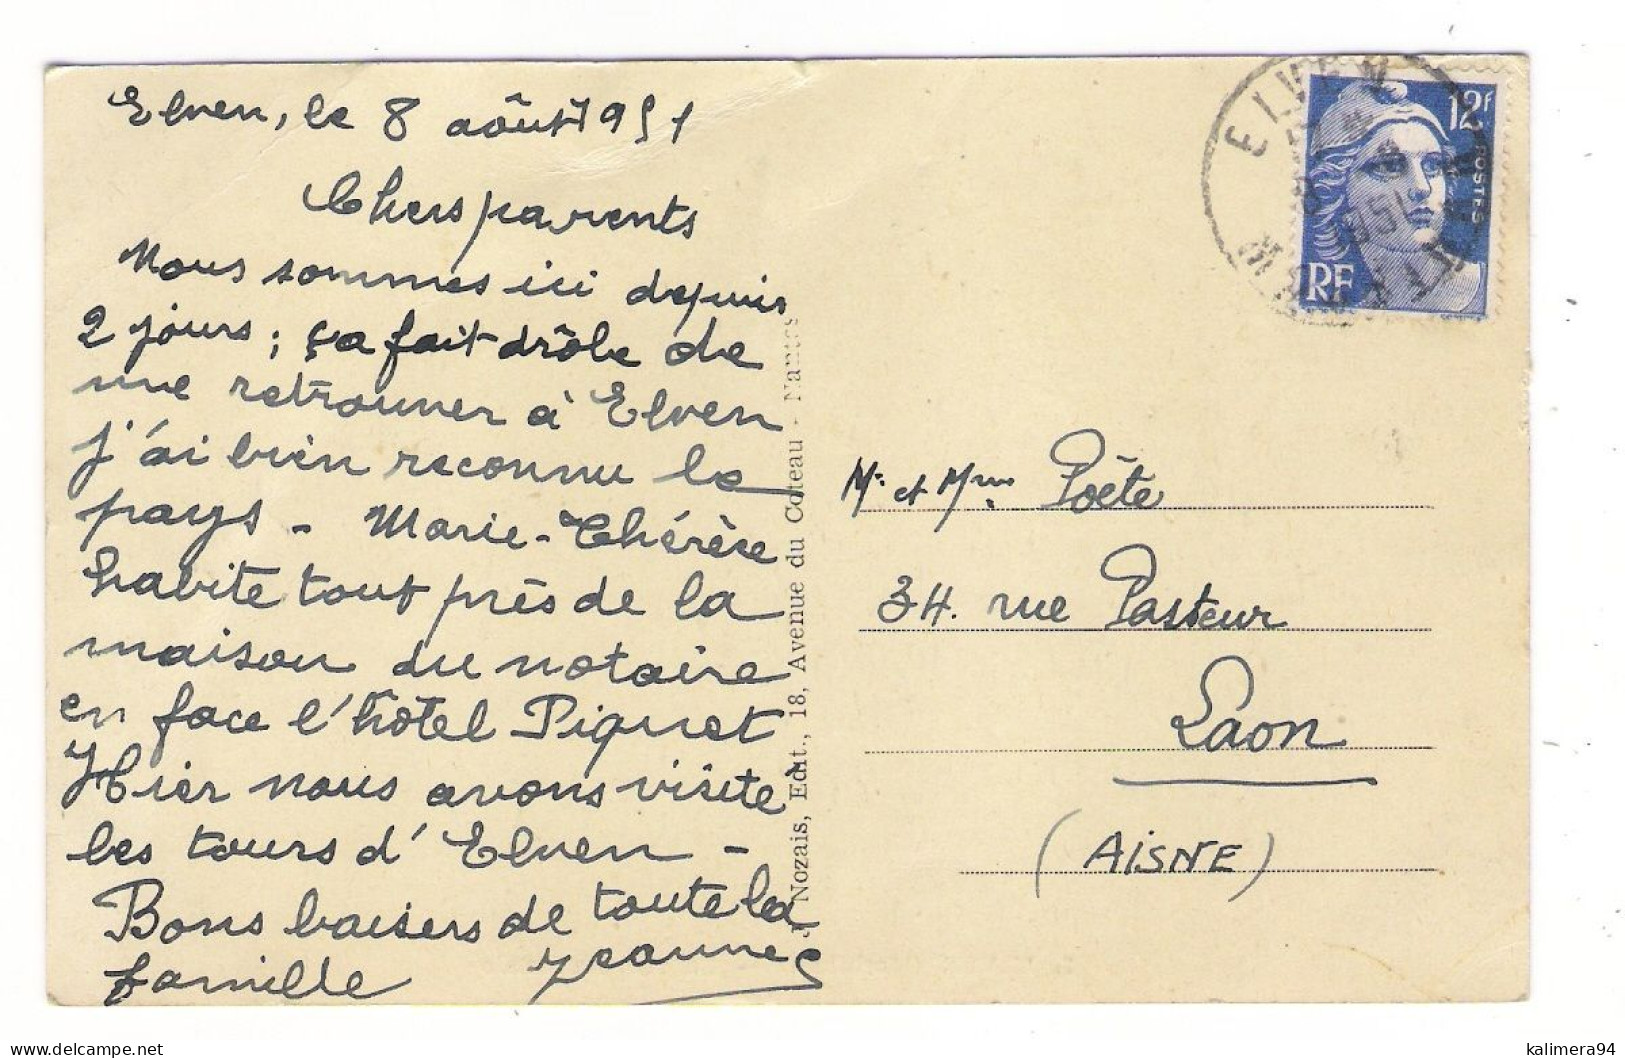 Elven, le 8 août 1951
Chers parents
Nous sommes ici depuis
2 jours ; ça fait drôle de
me retrouver à Elven
j'ai bien reconnu le
pays - Marie-Thérèse
habite tout près de la
maison du notaire
en face l'hôtel Piquet
Hier nous avons visité
les tours d'Elven -
Bons baisers de toute la
famille Jeanne
Nozais, Edit., 18, Avenue du Coteau - Nantes
ELVEN
MORBIHAN
1951
12F
POSTES
RF
Mr et Mme Poëte
34. rue Pasteur
Laon
(AISNE)
kalimera94